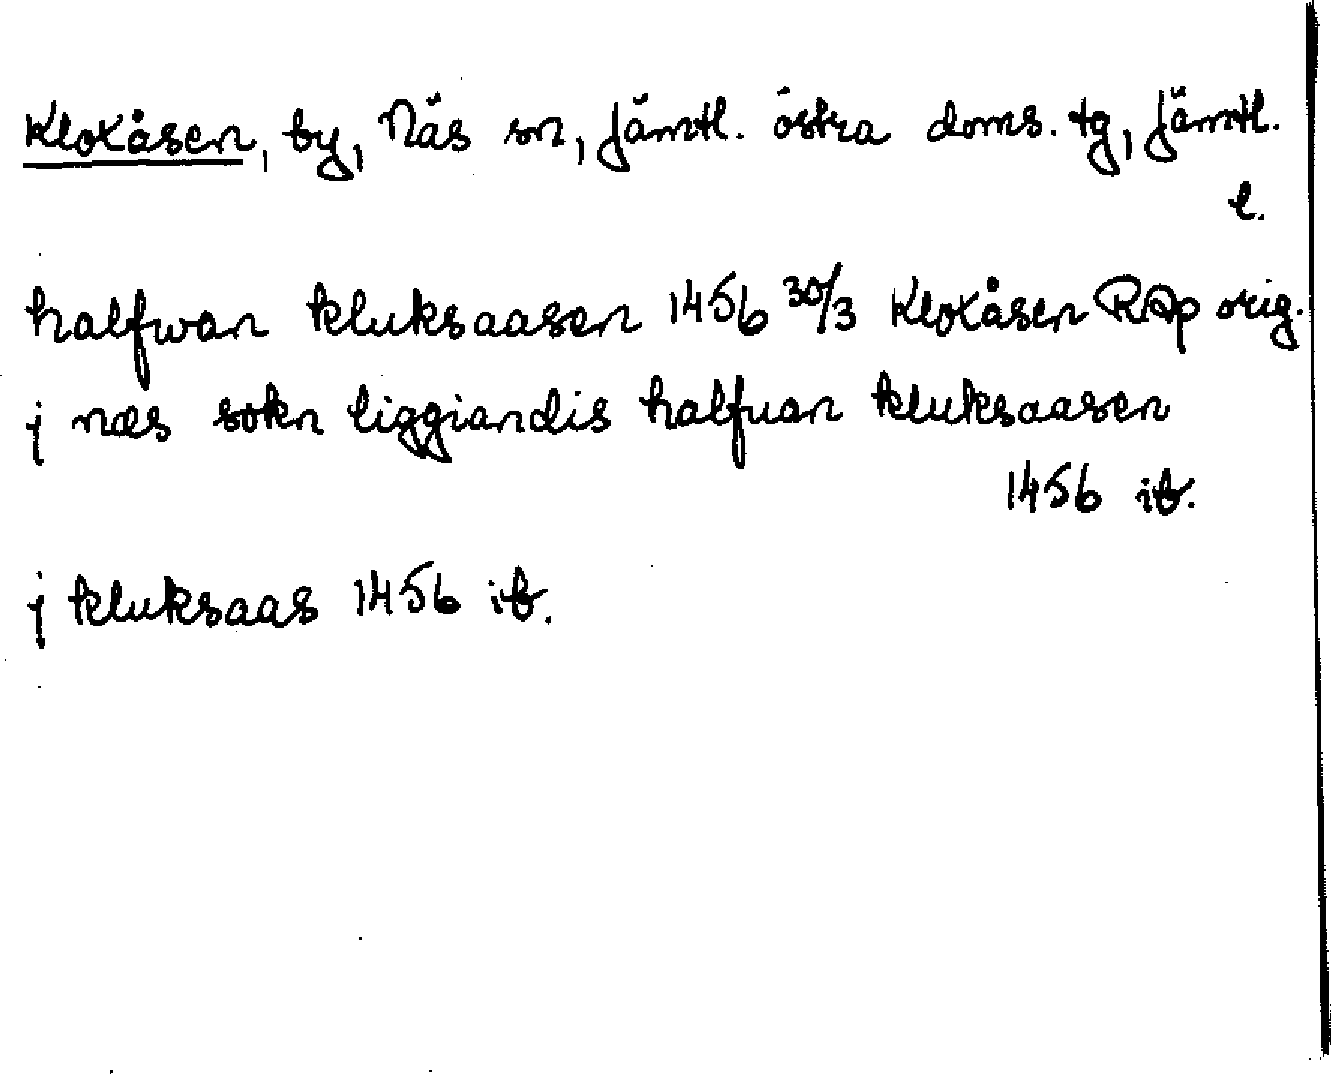 Kloxåsen, by, Näs sn, Jämtl. östra doms. tg, Jämtl.
l.
halfwan kluksaasen 1456 30/3 Kloxåsen RAp orig.
j næs sokn liggiandis halfuan kluksaasen
1456 ib.
j kluksaas 1456 ib.